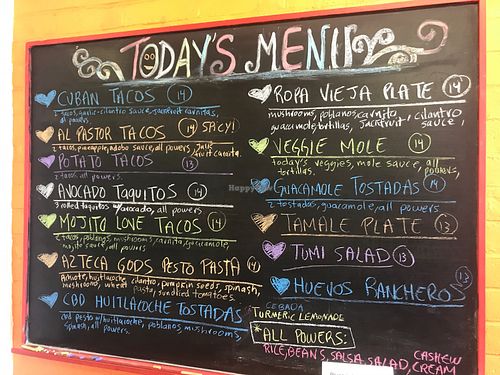 TODAY'S MENU
CUBAN TACOS 14
2 tacos, garlic-cilantro sauce, jackfruit carnitas,
all powers
AL PASTOR TACOS 14 SPICY!
2 tacos, pineapple, adobo sauce, all powers, jack
fruit carnita.
POTATO TACOS 13
2 tacos, all powers.
AVOCADO TAQUITOS 14
3 rolled taquitos w/avocado, all powers
MOJITO LOVE TACOS 14
2 tacos, poblanos, mushrooms, carnita, guacamole,
mojito sauce, all powers
AZTECA GODS PESTO PASTA
huitlacoche cilantro, pumpkin seeds, spinash,
mushrooms, wheat pasta, sundried tomatoes.
CBD HUITLACOCHE TOSTADAS
cbd pesto w/huitlacoche, poblanos mushrooms,
spinash, all powers.
ROPA VIEJA PLATE 14
mushrooms, poblanos, carnita, cilantro
guacamole, tortillas, Jackfruit, sauce,
VEGGIE MOLE 14
today's veggies, mole sauce, all powers,
tortillas.
GUACAMOLE TOSTADAS 14
2 tostadas, guacamole, all powers
TAMALE PLATE 13
TUMI SALAD 13
HUEVOS RANCHEROS 13
CEBADA
TURMERIC LEMONADE
*ALL POWERS:
RICE, BEANS, SALSA, SALAD, CASHEW
CREAM